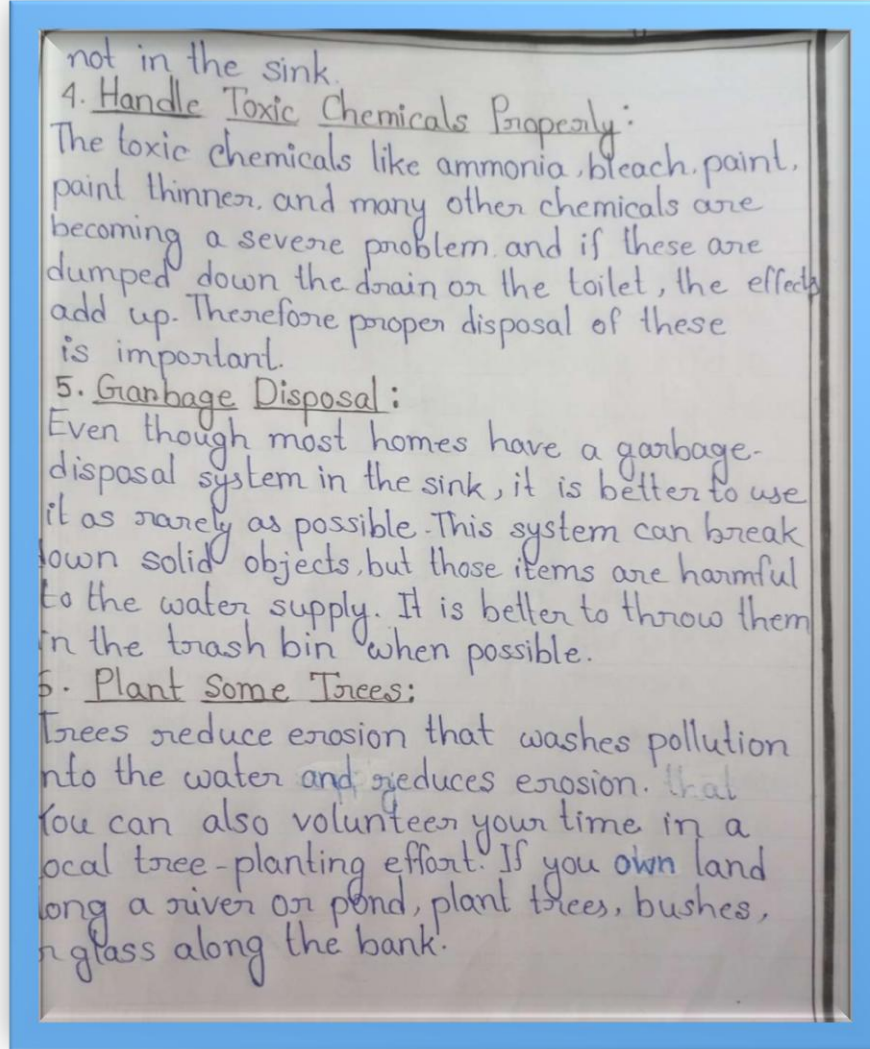 not in the sink.
4. Handle Toxic Chemicals Properly:
The toxic chemicals like ammonia, bleach, paint,
paint thinner, and many other chemicals are
becoming a severe problem. and if these are
dumped down the drain or the toilet, the effects
add up. Therefore proper disposal of these
is important.
5. Garbage Disposal:
Even though most homes have a garbage-
disposal system in the sink, it is better to use
it as rarely as possible. This system can break
down solid objects, but those items are harmful
to the water supply. It is better to throw them
in the trash bin when possible.
6. Plant Some Trees:
Trees reduce erosion that washes pollution
into the water and reduces erosion. that
You can also volunteer your time in a
local tree-planting effort. If you own land
long a river or pond, plant trees, bushes,
r glass along the bank.